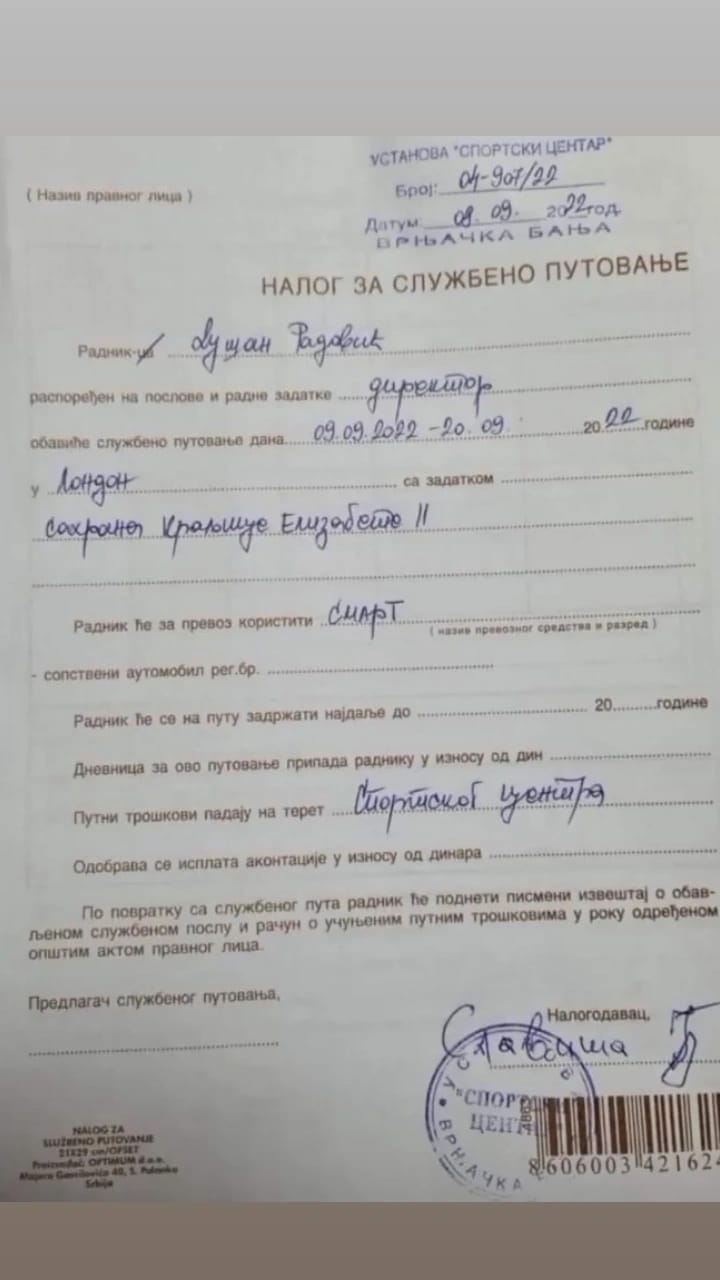 УСТАНОВА "СПОРТСКИ ЦЕНТАР"
( Назив правног лица )
Број: 04-907/22
Датум: 09.09. 2022 год.
ВРЊАЧКА БАЊА
НАЛОГ ЗА СЛУЖБЕНО ПУТОВАЊЕ
Радник-ца Душан Радовић
распоређен на послове и радне задатке директор
обавиће службено путовање дана 09.09.2022 - 20.09. 2022 године
у Лондон са задатком
сахрана Краљице Елизабете II
Радник ће за превоз користити СМАРТ
( назив превозног средства и разред )
- сопствени аутомобил рег.бр.
Радник ће се на путу задржати најдаље до 20 године
Дневница за ово путовање припада раднику у износу од дин
Путни трошкови падају на терет Спортског центра
Одобрава се исплата аконтације у износу од динара
По повратку са службеног пута радник ће поднети писмени извештај о обав-
љеном службеном послу и рачун о учуњеним путним трошковима у року одређеном
општим актом правног лица.
Предлагач службеног путовања,
Налогодавац,
Славиша
"СПОРТ
ЦЕНТ
ВРЊАЧКА
NALOG ZA
SLUŽBENO PUTOVANJE
21X29 cm/OFSET
Proizvođač: OPTIMUM d.o.o.
Majora Gavrilovića 40, S. Palanka
Srbija
8 606003 42162